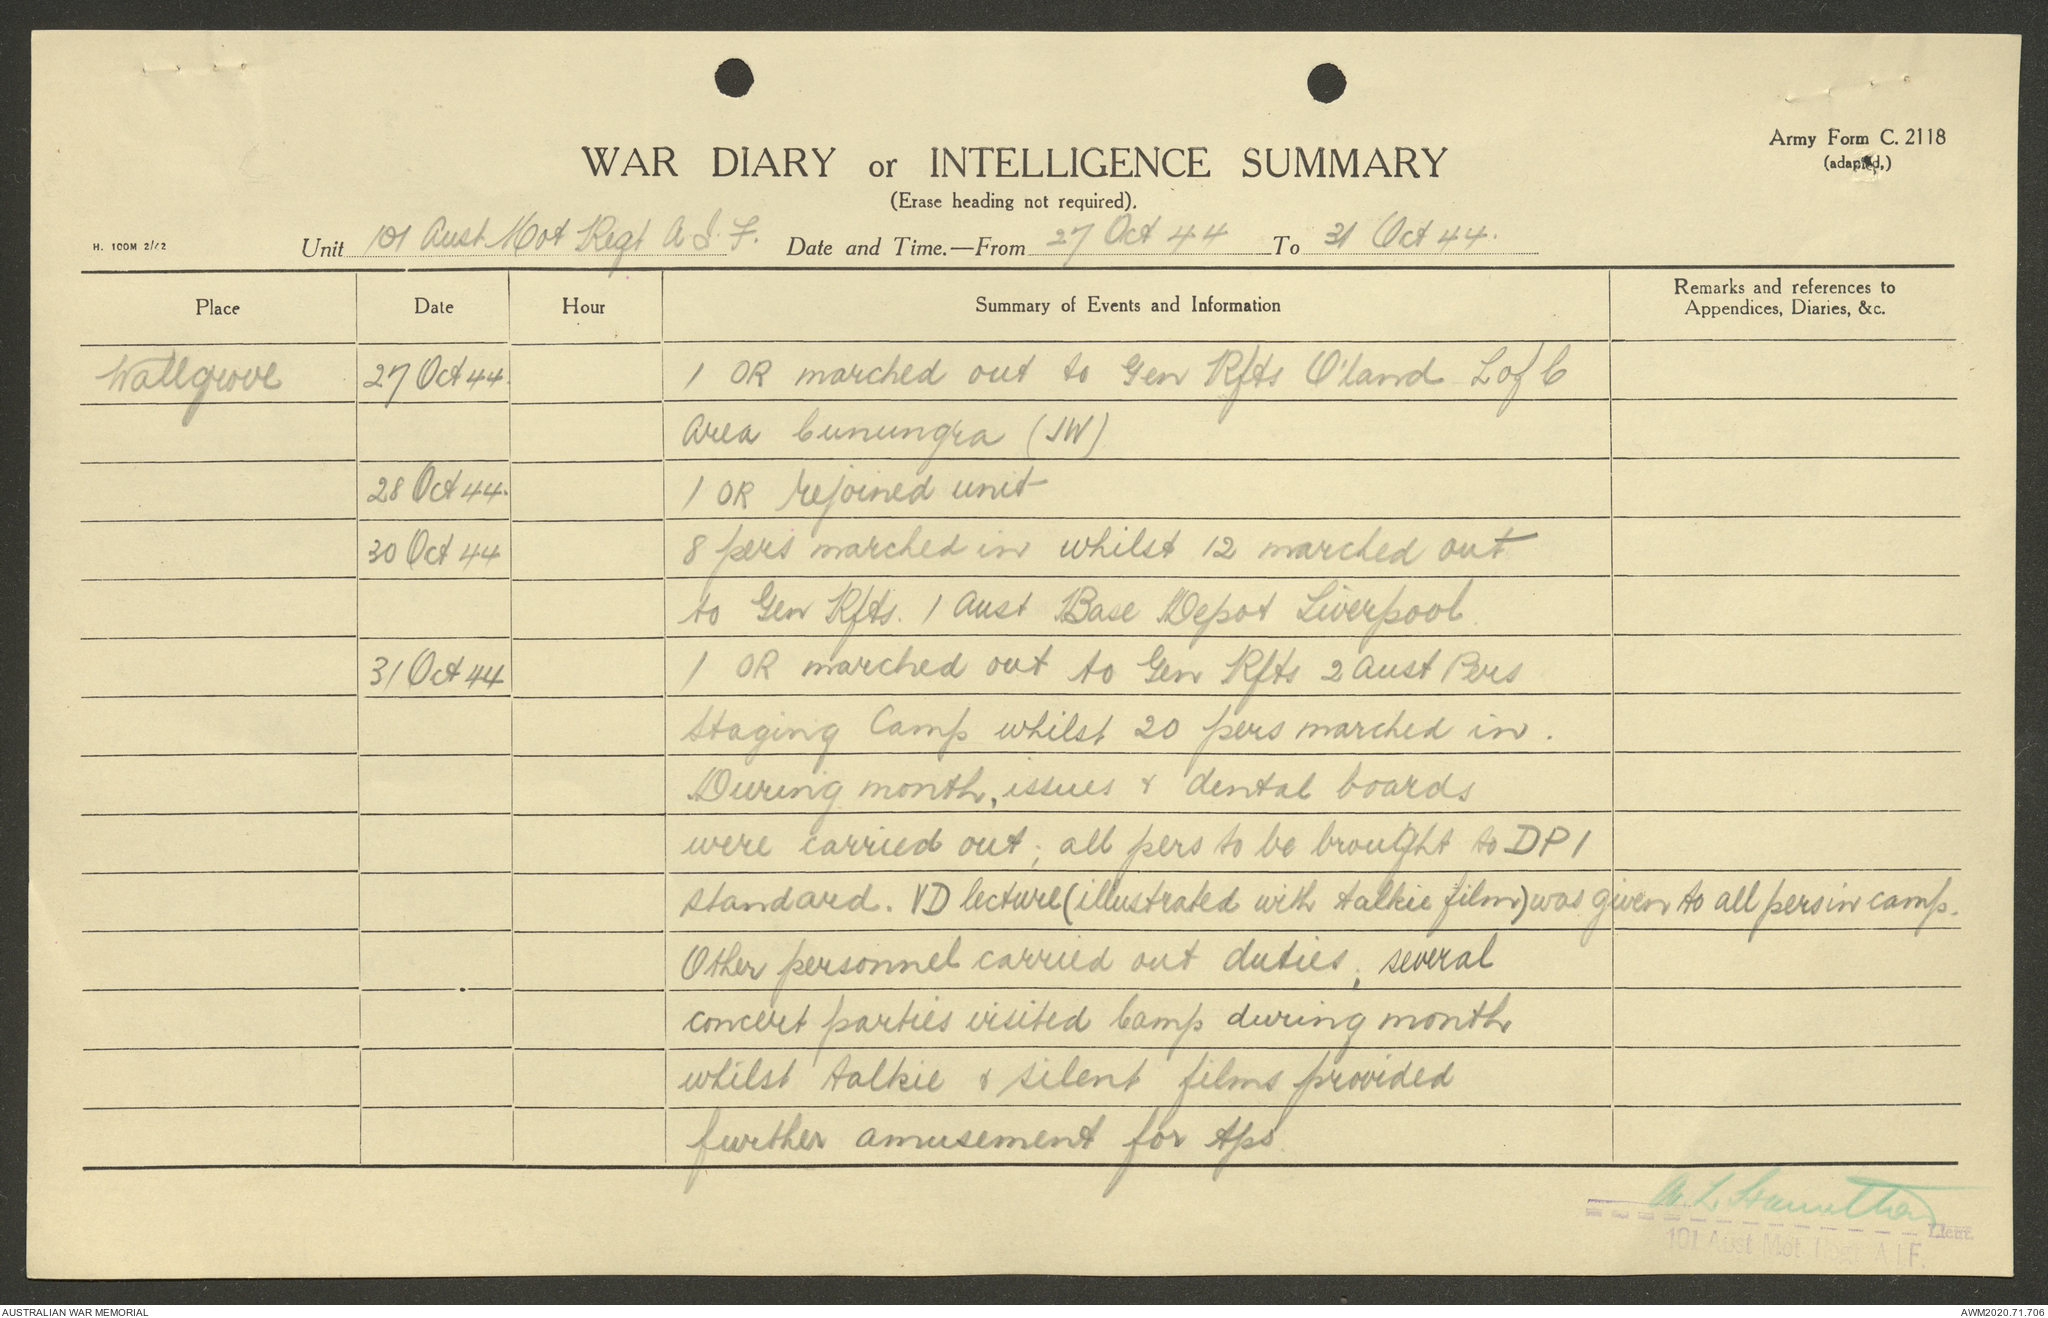 Army Form C. 2118
(adapted,)
WAR DIARY or INTELLIGENCE SUMMARY
(Erase heading not required).
H. 100M 2/42
Unit 101 Aust Mot Regt A.I.F. Date and Time.—From 27 Oct 44 To 31 Oct 44.
Place Date Hour Summary of Events and Information Remarks and references to
Appendices, Diaries, &c.
Wallgrove 27 Oct 44. 1 OR marched out to Gen Rfts Q'land L of C
Area Cunungra (JW)
28 Oct 44. 1 OR rejoined unit
30 Oct 44 8 pers marched in whilst 12 marched out
to Gen Rfts. 1 Aust Base Depot Liverpool.
31 Oct 44 1 OR marched out to Gen Rfts 2 Aust Pers
Staging Camp whilst 20 pers marched in.
During month, issues & dental boards
were carried out; all pers to be brought to DP1
standard. VD lecture (illustrated with talkie film) was given to all pers in camp.
Other personnel carried out duties, several
concert parties visited Camp during month
whilst talkie & silent films provided
further amusement for tps
Lieut.
101 Aust Mot. Regt. A.I.F.
AUSTRALIAN WAR MEMORIAL
AWM2020.71.706